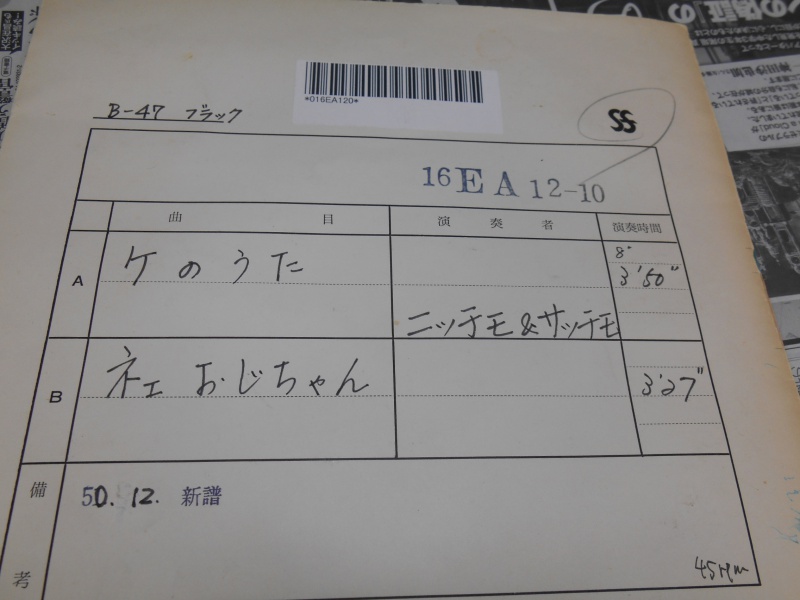 の偽証
*016EA120*
B-47 ブラック
SS
16EA12-10
曲目 演奏者 演奏時間
A ケのうた 8"
3'50"
ニッチモ&サッチモ
B ネェ おじちゃん 3'27"
備考 50.12. 新譜
45rpm